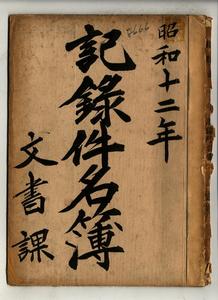 昭和十二年
記錄件名簿
文書課